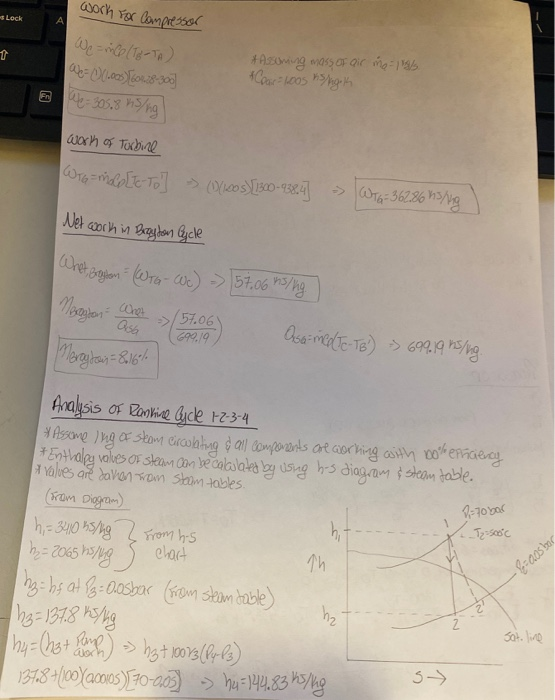 s Lock
A
Fn
Work For Compressor
Wc = ṁCp(TB'-TA)
* Assuming mass of air ṁa = 1 kg/s
Wc = (1)(1.005)[604.28-300]
* Cpair = 1.005 kJ/kg·K
Wc = 305.8 kJ/kg
Work of Turbine
WTG = ṁaCp[TC-TD'] => (1)(1.005)[1300-938.4] => WTG = 362.86 kJ/kg
Net work in Brayton Cycle
Wnet, Brayton = (WTG - Wc) => 57.06 kJ/kg
ηBrayton = Wnet/QSG => (57.06/699.19)
QSG = ṁCp(TC-TB') => 699.19 kJ/kg
ηBrayton = 8.16%
Analysis of Rankine Cycle 1-2-3-4
* Assume 1 kg of steam circulating & all components are working with 100% efficiency
* Enthalpy values of steam can be calculated by using h-s diagram & steam table.
* Values are taken from steam tables
(From Diagram)
h1 = 3410 kJ/kg } From h-s
h2 = 2065 kJ/kg } chart
h3 = hf at P3 = 0.05 bar (from steam table)
h3 = 137.8 kJ/kg
h4 = (h3 + Pump work) => h3 + 100v3(P4-P3)
137.8 + (100)(0.00105)[70-0.05] => h4 = 144.83 kJ/kg
P1 = 70 bar
h1
1
T1 = 500°C
↑h
P2 = 0.05 bar
h2
2
2'
Sat. line
S→